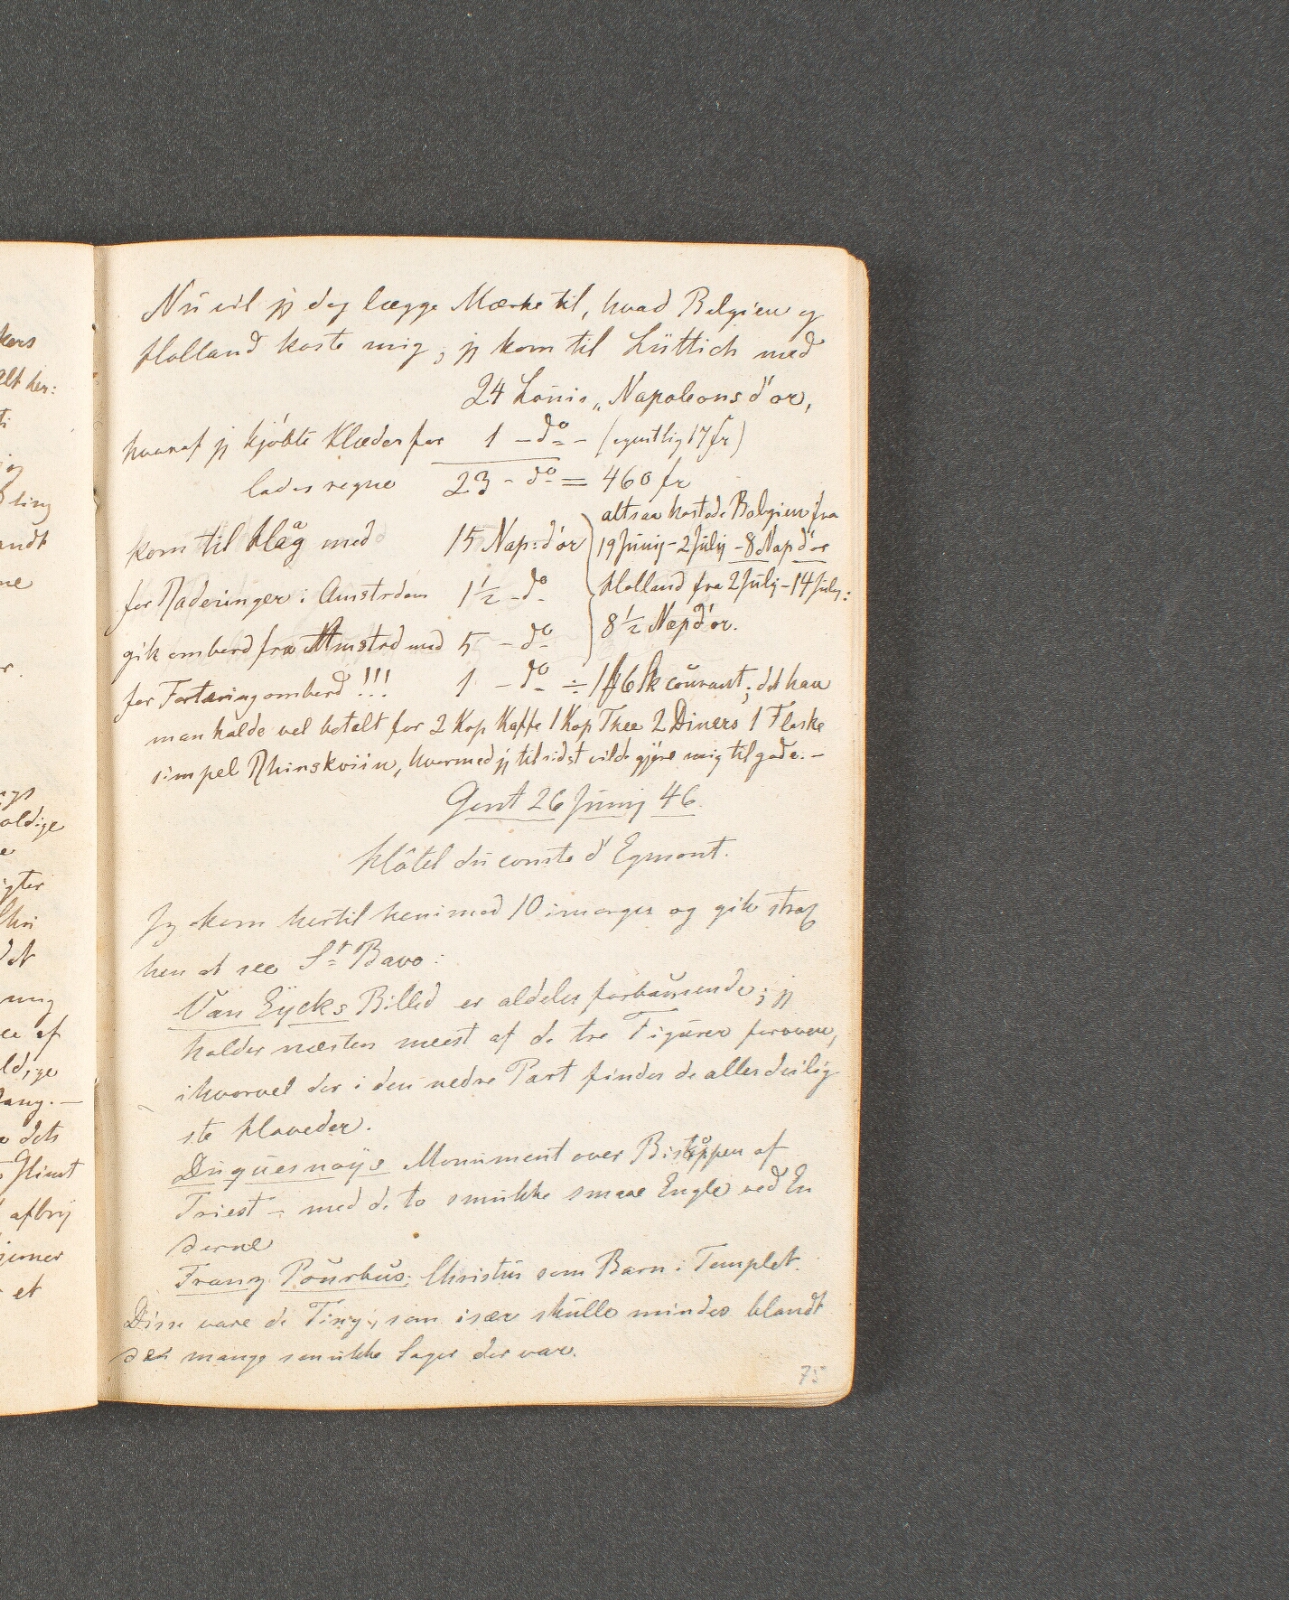 kers
alt her:
ti
og
ling
andt
ne
r.
ngs
oldige
e
gter
det
mig
ee af
ldige
lang. —
e dets
afbry
et
Nu vil jeg dog lægge Mærke til, hvad Belgien og
Holland koste mig; jeg kom til Lüttich med
24 Louis „ Napoleons d'or,
hvoraf jeg kjøbte Klæder for 1 - do - (egentlig 17 fr)
lades regne 23 - do = 460 fr
altsaa kostede Belgien fra
kom til Haag med 15 Nap: d'or 19 Junij - 2 July - 8 Nap d'or
for Raderinger i Amstrdam 1½ - do Holland fra 2 July - 14 July:
gik ombord fra Amstrd med 5 - do 8½ Nap d'or.
for Fortæring ombord !!! 1 - do ÷ 1 6 Sk courant; det kan
man kalde vel betalt for 2 Kop Kaffe 1 Kop Thee 2 Diners 1 Flaske
simpel Rhinskviin, hvormed jeg tilsidst vilde gjøre mig tilgode. —
Gent 26 Junij 46.
Hôtel du comte d'Egmont.
Jeg kom hertil henimod 10 imorges og gik strax
hen at see St Bavo:
Van Eycks Billed er aldeles forbausende; jeg
holder næsten meest af de tre Figurer foroven,
ihvorvel der i den nedre Part findes de allerdeilig
ste Hoveder.
Duquesnoys Monument over Biskoppen af
Triest - med de to smukke smaae Engle ved En
derne
Franz Pourbus; Christus som Barn i Templet.
Disse vare de Ting, som især skulle mindes blandt
de mange smukke Sager der var.
75